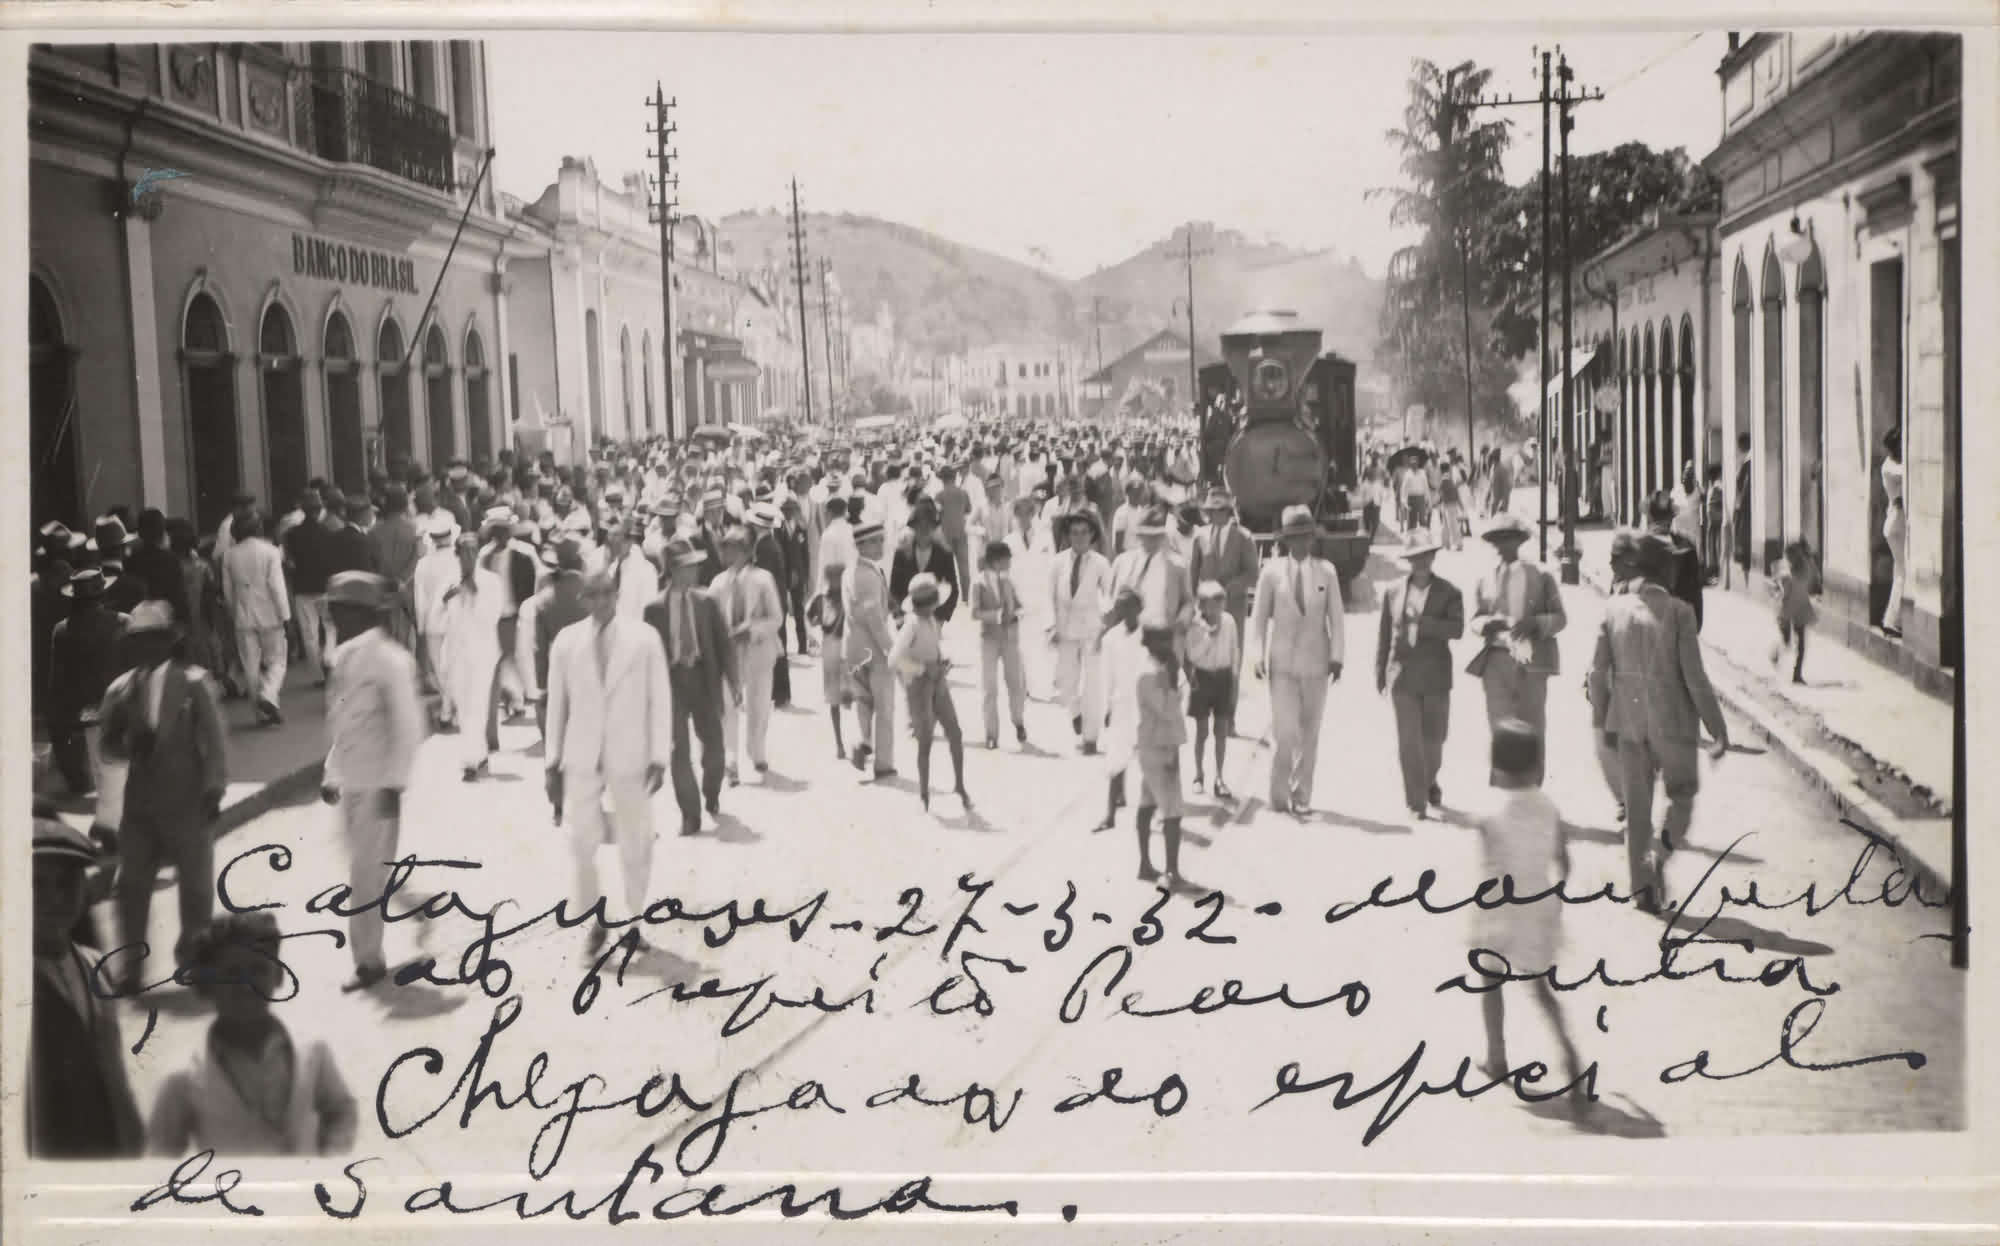 BANCO DO BRASIL
Cataguases - 27-3-32 - Manifesta
ção ao Prefeito Pedro Dutra
Chegada do especial
de Santana.